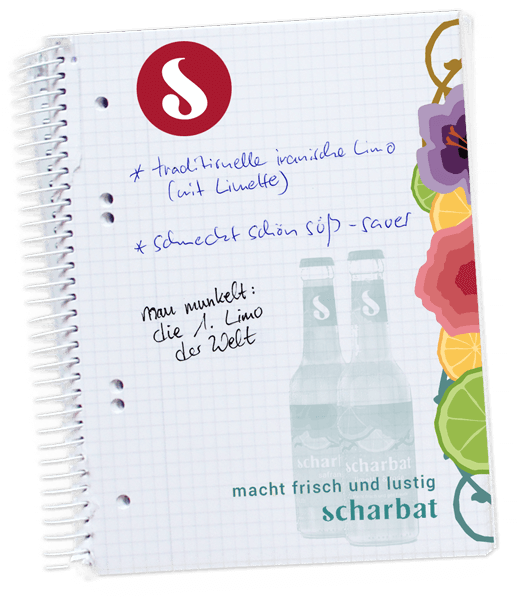 S
* traditionelle iranische Limo
(mit Limette)
* schmeckt schön süß-sauer
man munkelt:
die 1. Limo
der Welt
S
S
schar
scharbat
macht frisch und lustig
scharbat